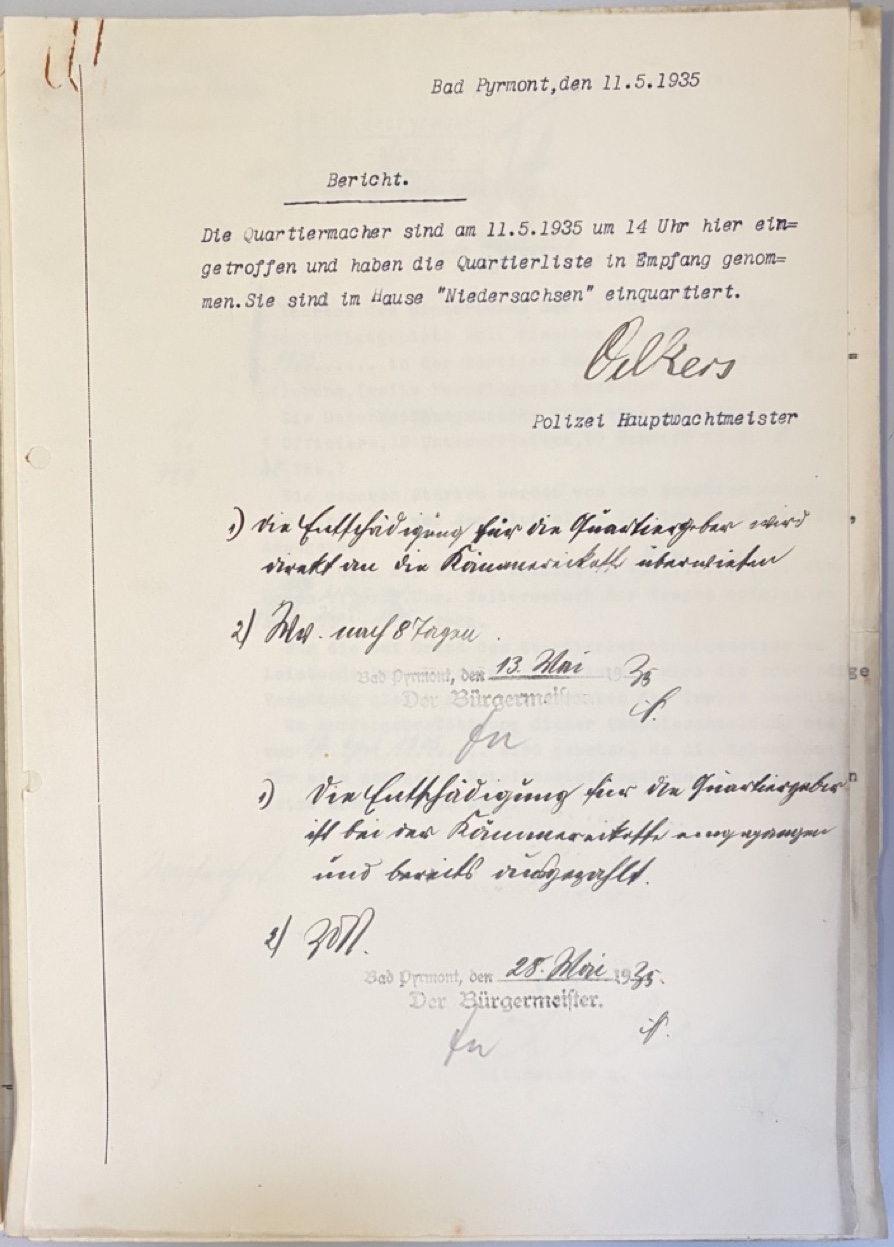 Bad Pyrmont,den 11.5.1935
Bericht.
Die Quartiermacher sind am 11.5.1935 um 14 Uhr hier ein=
getroffen und haben die Quartierliste in Empfang genom=
men.Sie sind im Hause "Niedersachsen" einquartiert.
Oelkers
Polizei Hauptwachtmeister
1) Die Entschädigung für die Quartiergeber wird
direkt an die Kämmereikasse überwiesen
2) Wv. nach 8 Tagen.
Bad Pyrmont, den 13. Mai 1935
Der Bürgermeister
1) Die Entschädigung für die Quartiergeber
ist bei der Kämmereikasse eingegangen
und bereits ausgezahlt.
2) ZdA.
Bad Pyrmont, den 28. Mai 1935.
Der Bürgermeister.